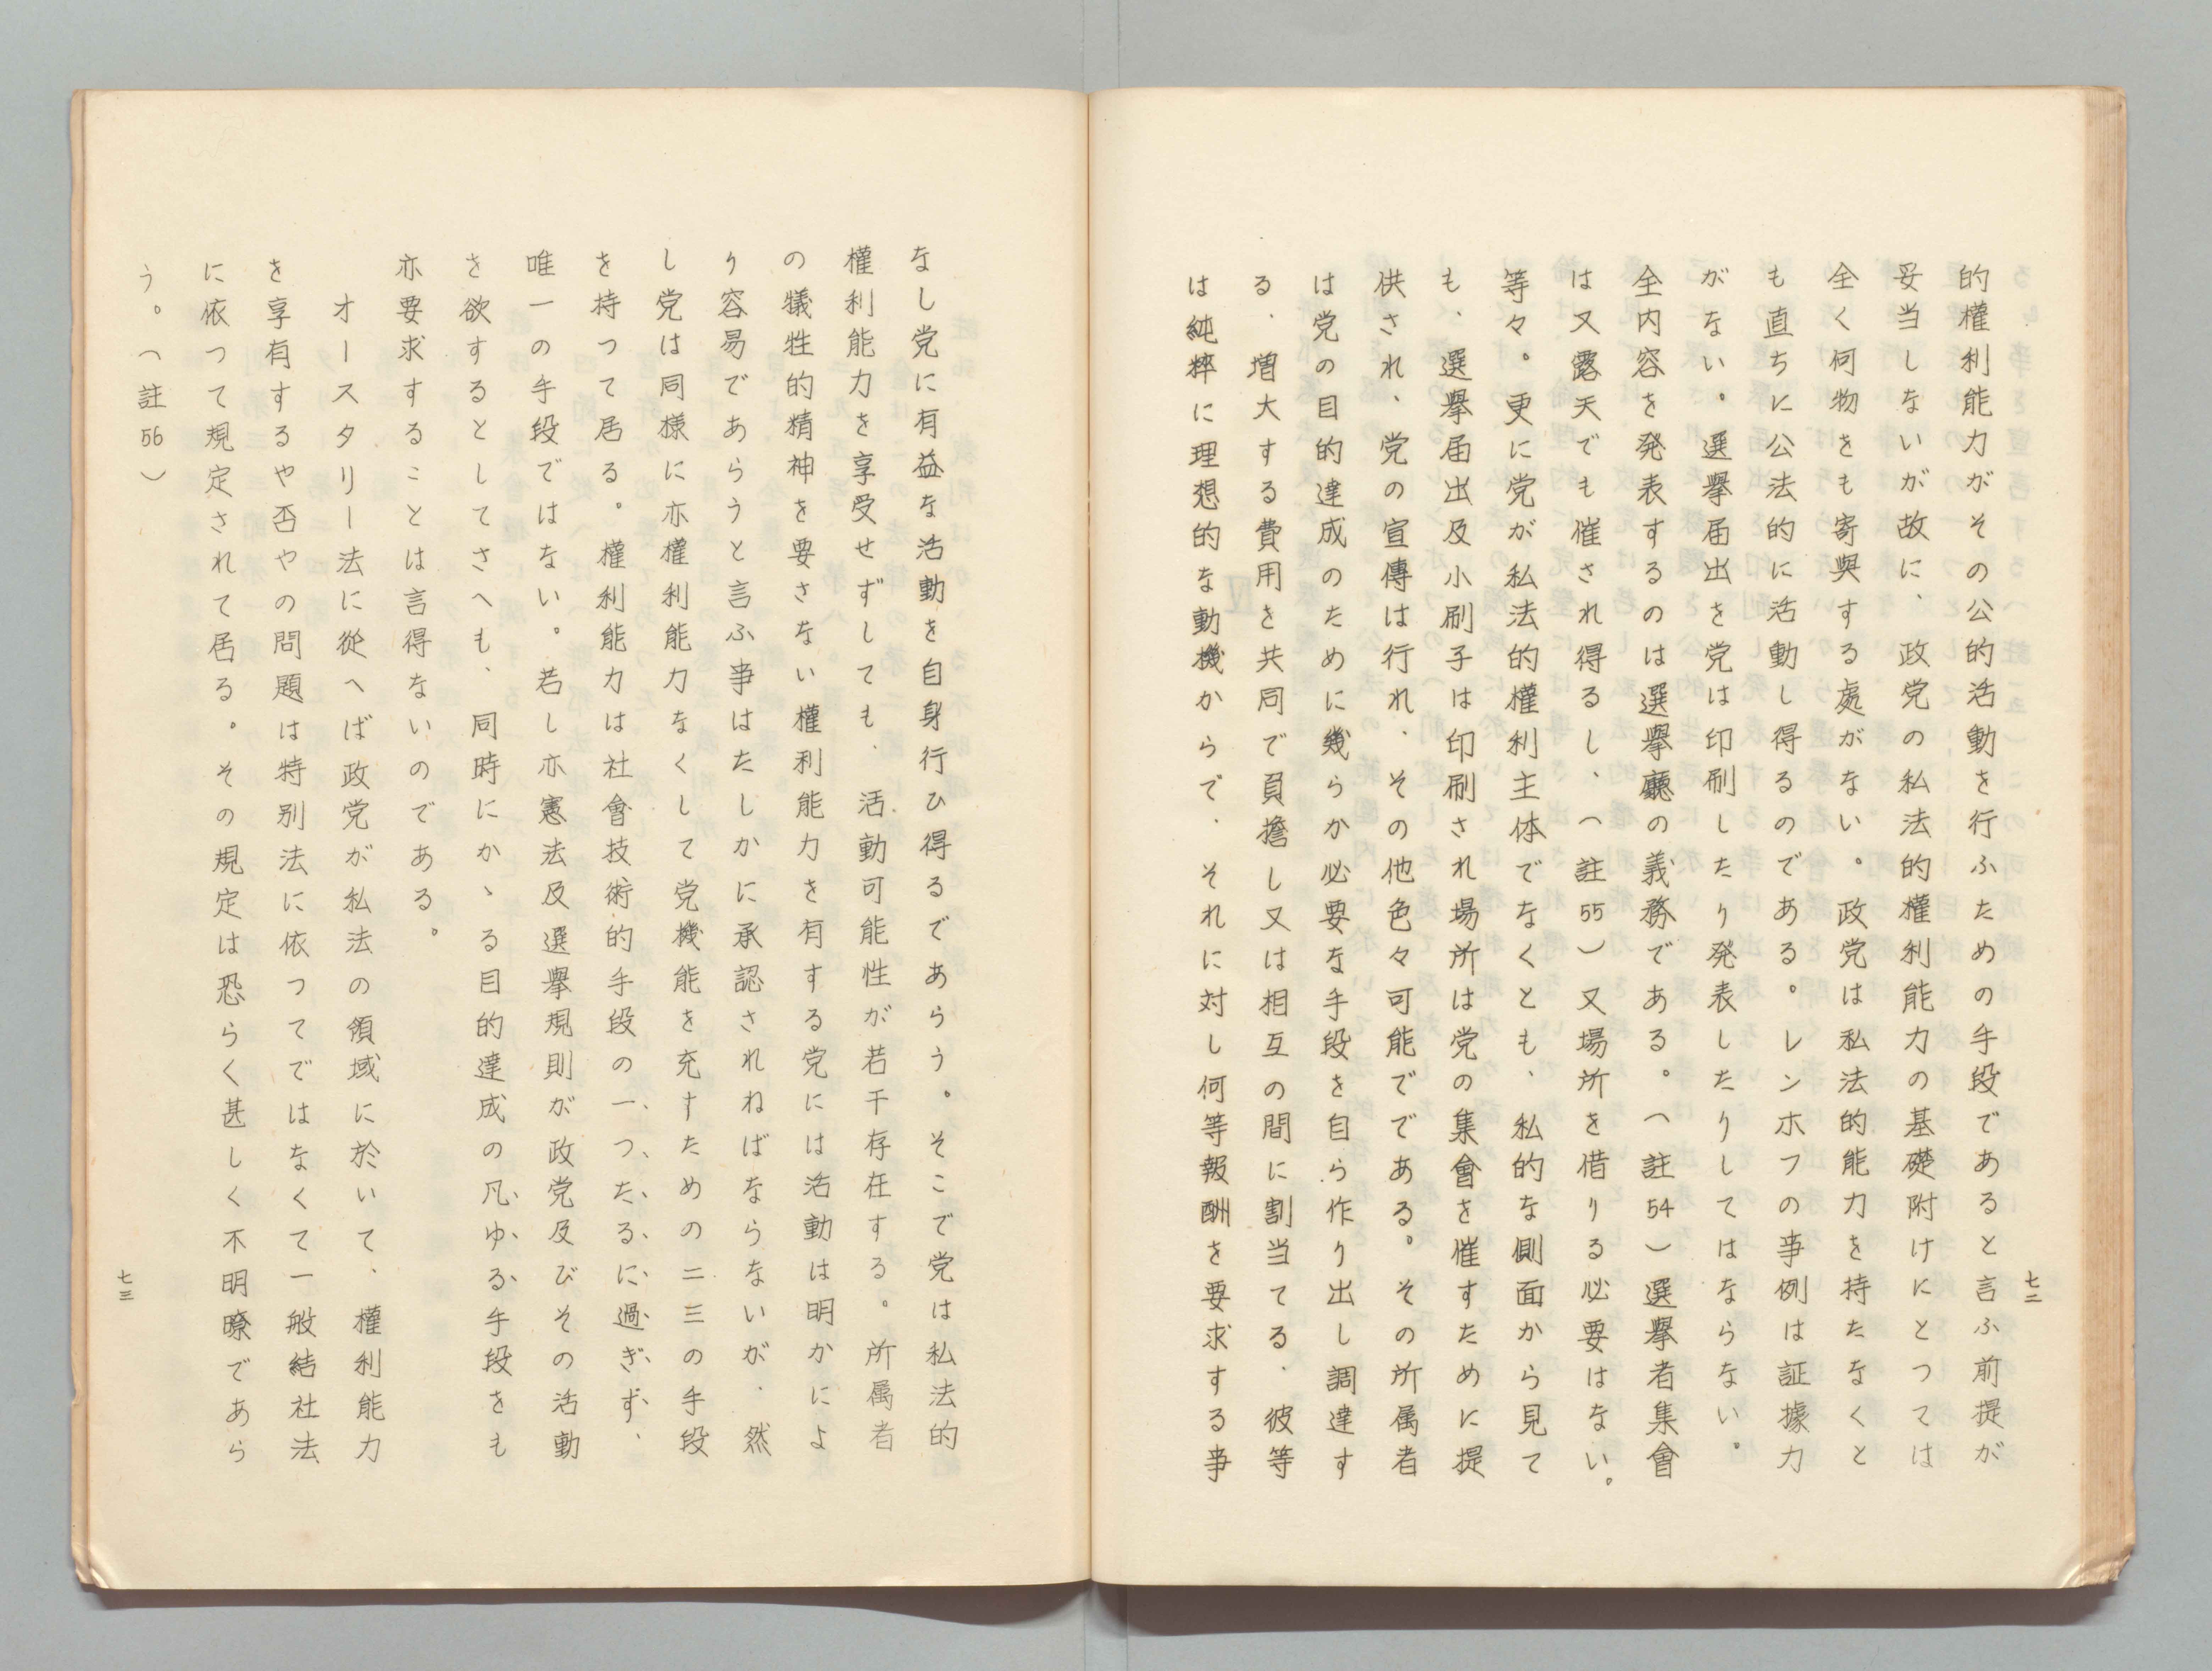 七二
的權利能力がその公的活動を行ふための手段であると言ふ前提が
妥当しないが故に、政党の私法的權利能力の基礎附けにとつては
全く何物をも寄與する處がない。政党は私法的能力を持たなくと
も直ちに公法的に活動し得るのである。レンホフの事例は証據力
がない。選擧届出を党は印刷したり発表したりしてはならない。
全内容を発表するのは選擧廳の義務である。（註54）選擧者集會
は又露天でも催され得るし、（註55）又場所を借りる必要はない。
等々。更に党が私法的權利主体でなくとも、私的な側面から見て
も、選擧届出及小刷子は印刷され場所は党の集會を催すために提
供され、党の宣傳は行れ、その他色々可能でである。その所属者
は党の目的達成のために幾らか必要な手段を自ら作り出し調達す
る、増大する費用を共同で負擔し又は相互の間に割当てる、彼等
は純粹に理想的な動機からで、それに対し何等報酬を要求する事
なし党に有益な活動を自身行ひ得るであらう。そこで党は私法的
權利能力を享受せずしても、活動可能性が若干存在する。所属者
の犠牲的精神を要さない權利能力を有する党には活動は明かによ
り容易であらうと言ふ事はたしかに承認されねばならないが、然
し党は同様に亦權利能力なくして党機能を充すための二三の手段
を持つて居る。權利能力は社會技術的手段の一つたるに過ぎず、
唯一の手段ではない。若し亦憲法及選擧規則が政党及びその活動
さ欲するとしてさへも、同時にかゝる目的達成の凡ゆる手段をも
亦要求することは言得ないのである。
オースタリー法に從へば政党が私法の領域に於いて、權利能力
を享有するや否やの問題は特別法に依つてではなくて一般結社法
に依つて規定されて居る。その規定は恐らく甚しく不明瞭であら
う。（註56）
七三